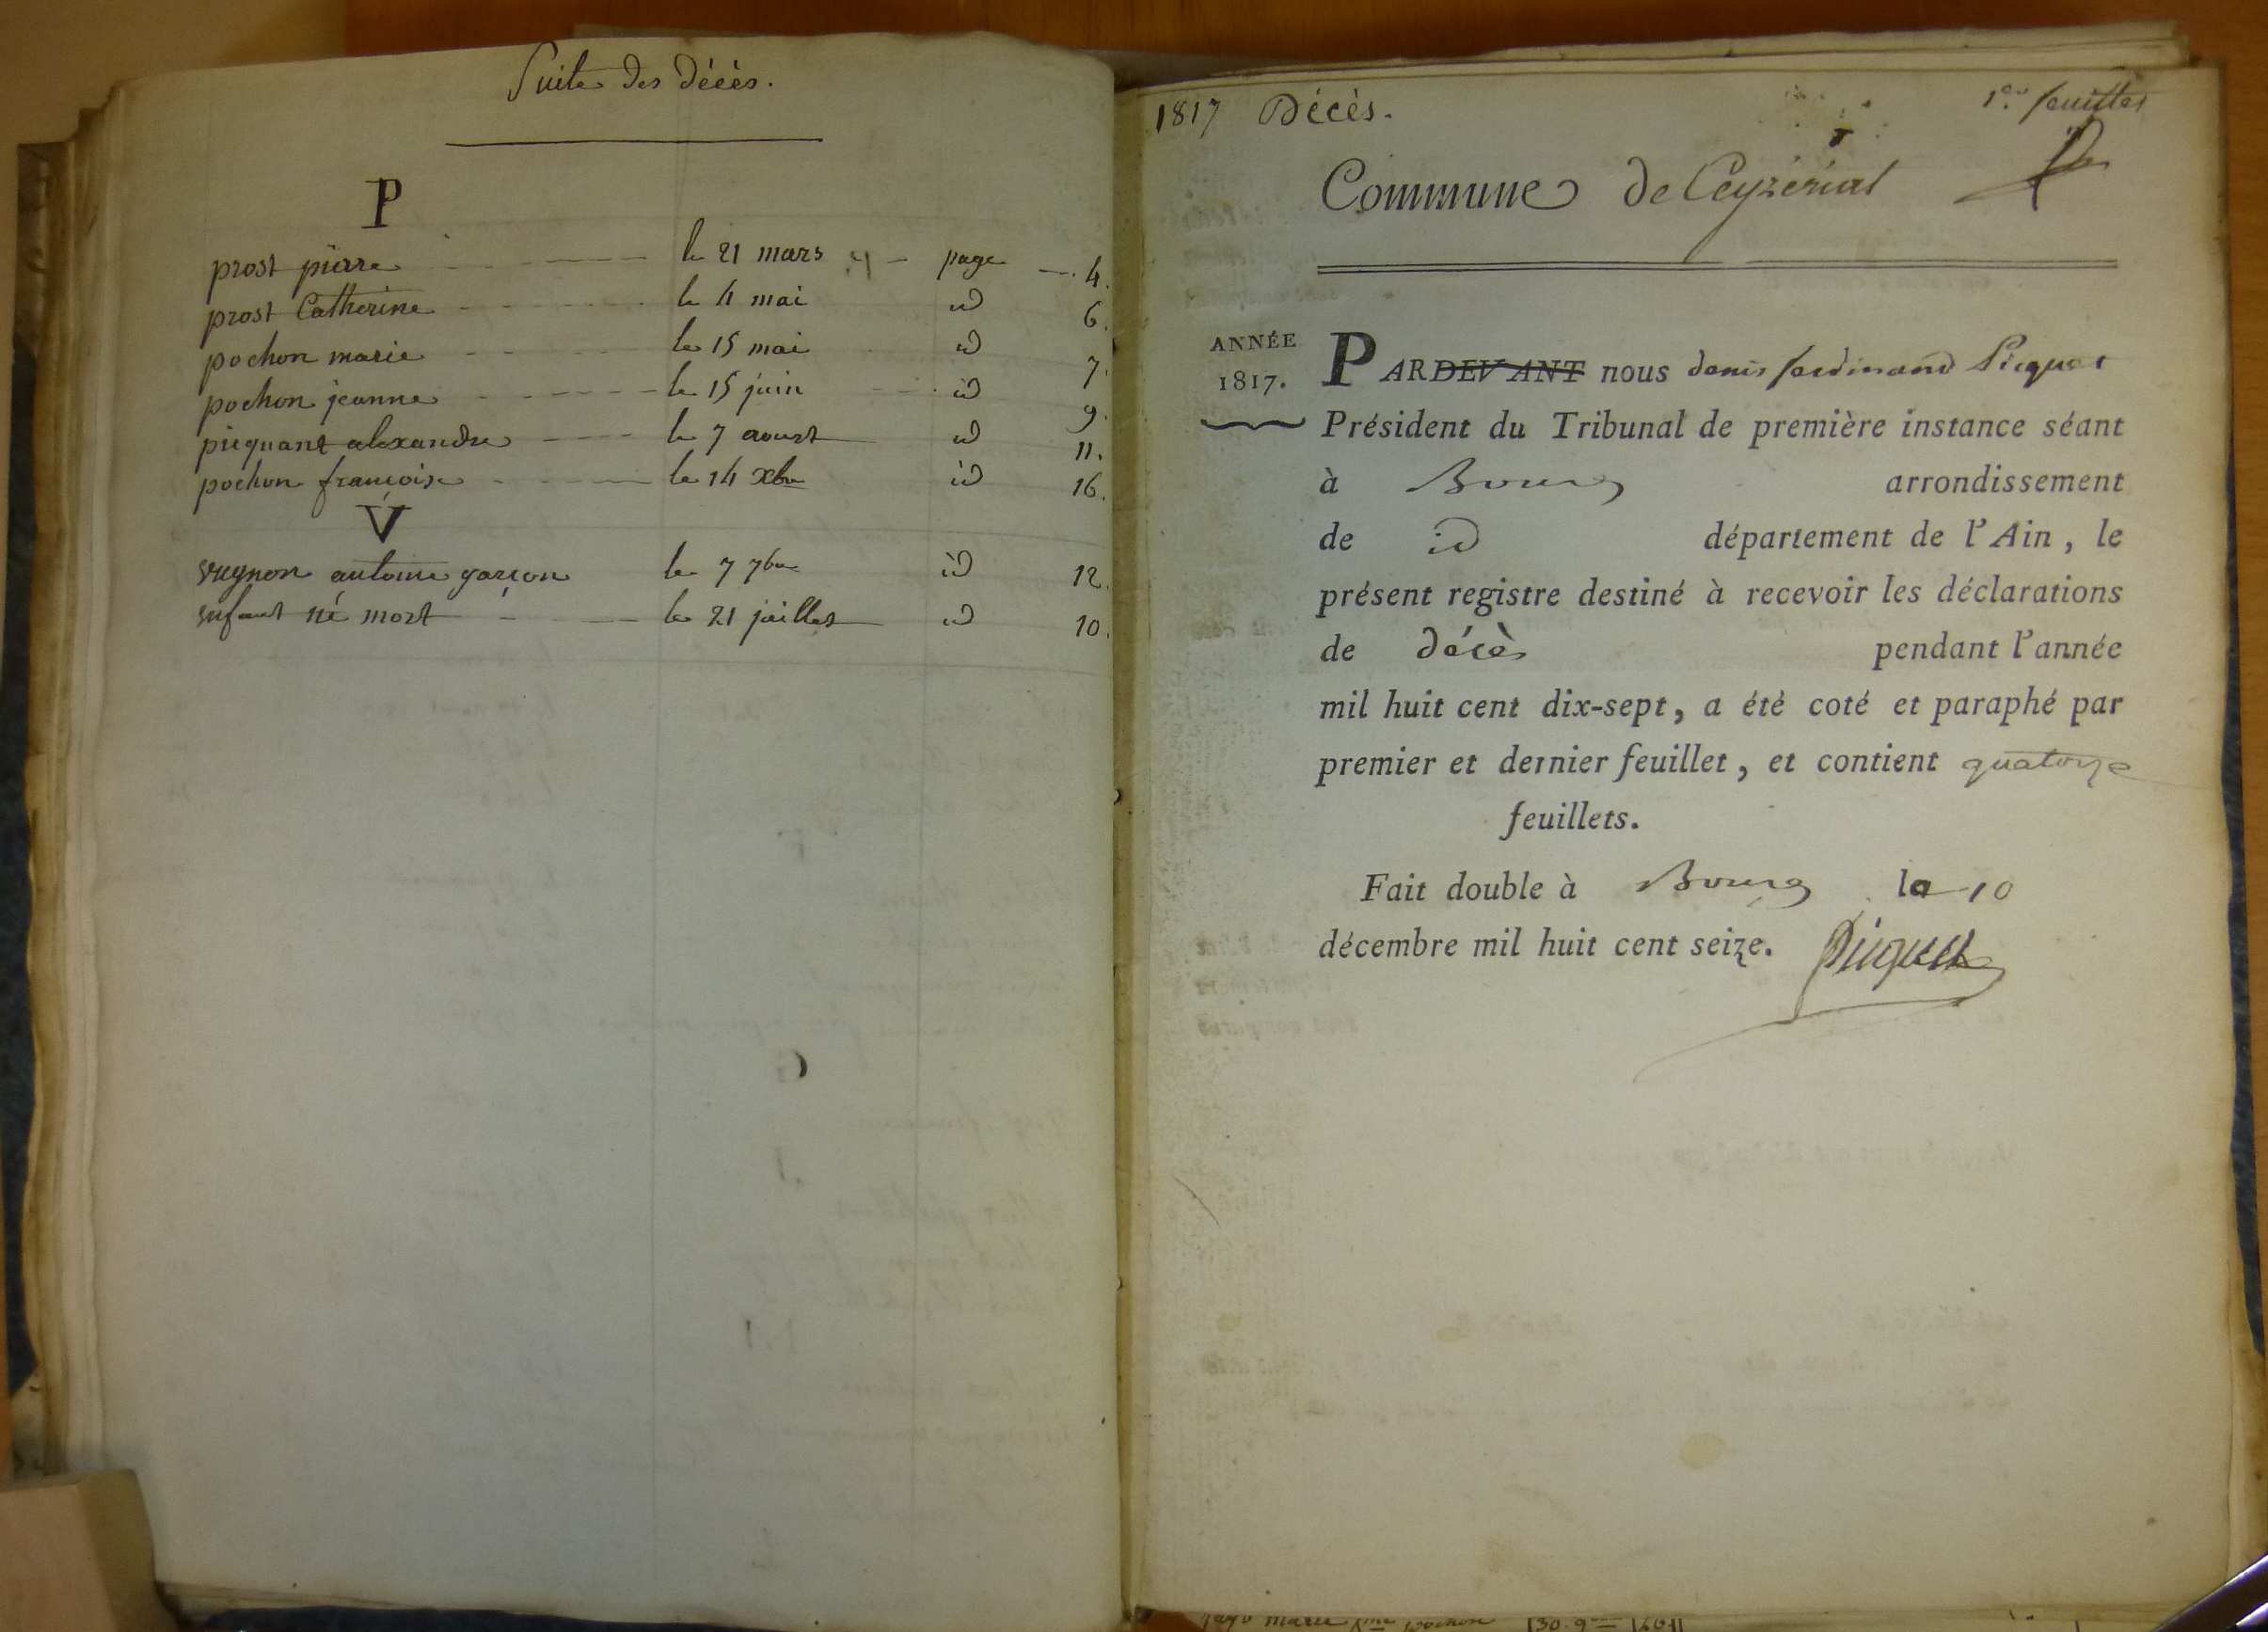 Suite des décès.
P
prost pierre le 21 mars page 4.
prost Catherine le 4 mai id 6.
pochon marie le 15 mai id 7.
pochon jeanne le 15 juin id 9.
picquant alexandre le 7 aoust id 11.
pochon françoise le 14 xbre id 16.
V
vugnon antoine garçon le 7 7bre id 12.
enfant né mort le 21 juillet id 10.
1817 Décès.
1er feuillet
Commune de Ceyzériat
ANNÉE
1817.
PARDEVANT nous denis ferdinand Picquet
Président du Tribunal de première instance séant
à Bourg arrondissement
de id département de l'Ain, le
présent registre destiné à recevoir les déclarations
de décès pendant l'année
mil huit cent dix-sept, a été coté et paraphé par
premier et dernier feuillet, et contient quatorze
feuillets.
Fait double à Bourg le 10
décembre mil huit cent seize. Picquet
marie pochon 30. 9